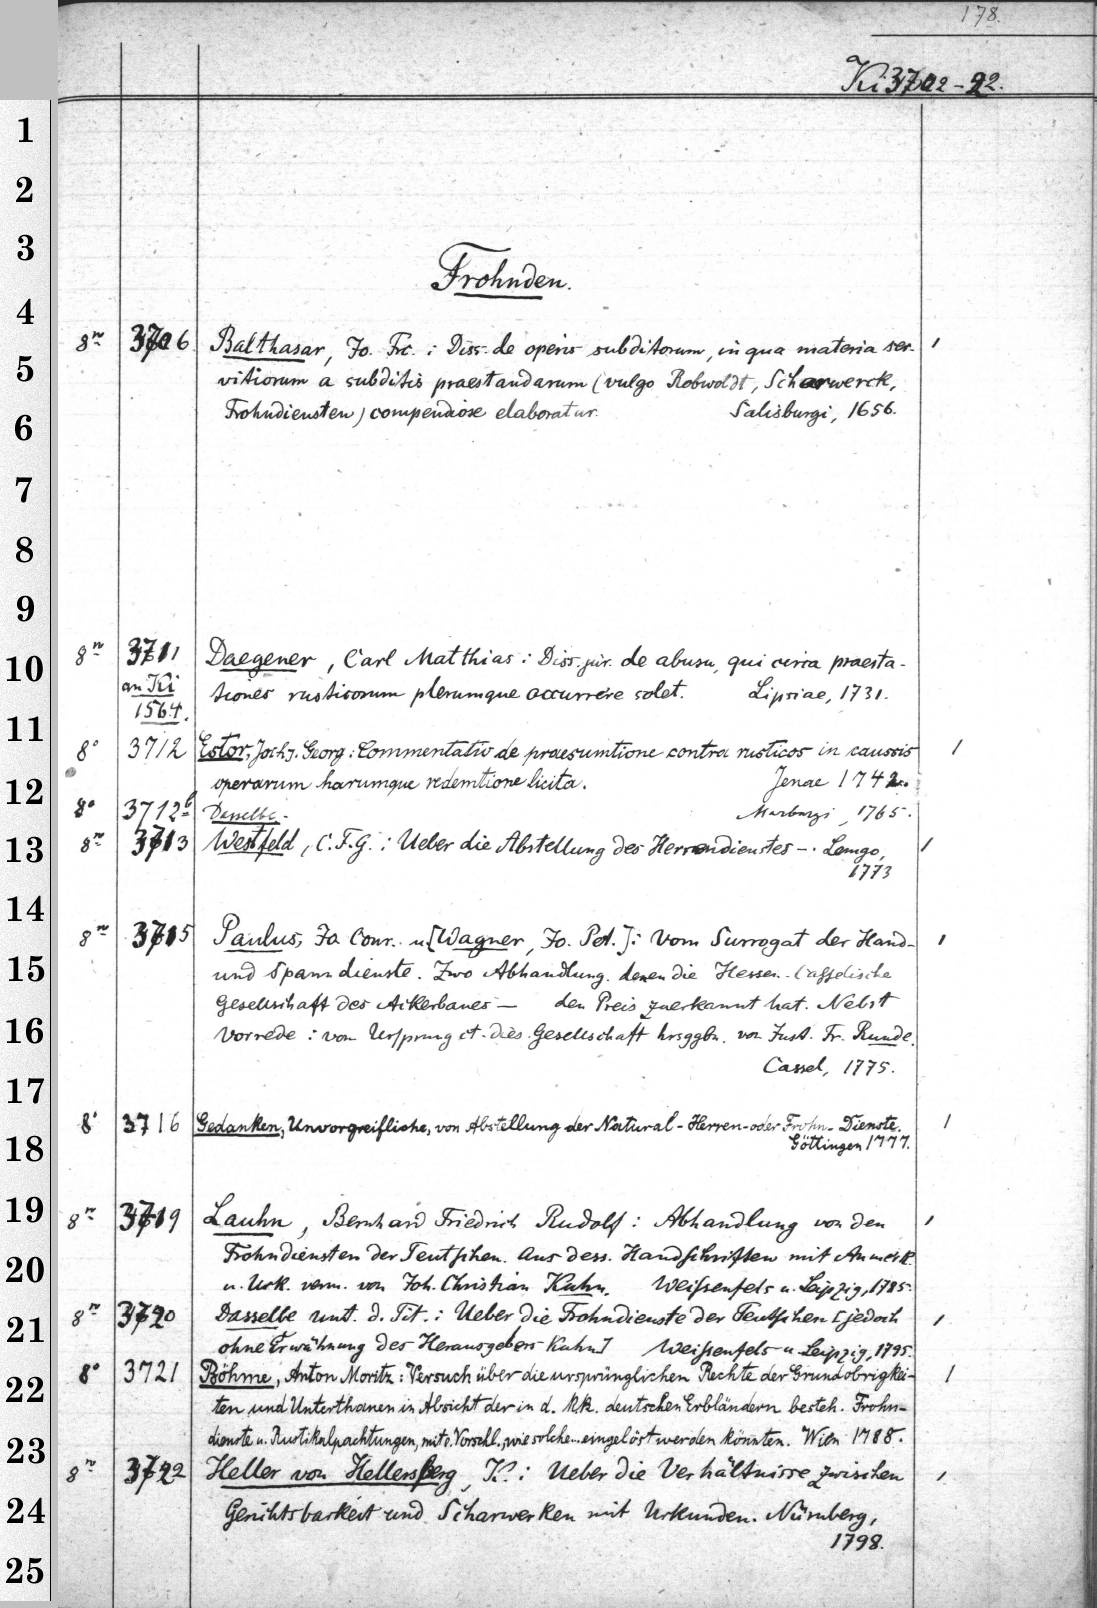 178.
Ki 3702-22.
1
2
3
Frohnden.
4
8º 3706 Balthasar, Jo. Frc.: Diss. de operis subditorum, in qua materia ser-
5
vitiorum a subditis praestandarum (vulgo Robwoldt, Scharwerck,
Frohndiensten) compendiose elaboratur. Salisburgi, 1656.
6
7
8
9
8º 3711 Daegener, Carl Matthias: Diss. jur. de abusu, qui circa praesta-
10
an Ki tiones rusticorum plerumque occurrere solet. Lipsiae, 1731.
1564.
11
8º 3712 Estor, Joch J. Georg: Commentatio de praesumtione contra rusticos in caussis
operarum harumque redemtione licita. Jenae 1742.
12
8º 3712b Dasselbe. Marburgi, 1765.
8º 3713 Westfeld, C.F.G.: Ueber die Abstellung des Herrendienstes –. Lemgo,
13
1773
14
8º 3715 Paulus, Jo Conr. u. [Wagner, Jo. Pet.]: Vom Surrogat der Hand-
15
und Spanndienste. Zwo Abhandlung. denen die Hessen-Casselische
Gesellschaft des Ackerbaues — den Preis zuerkannt hat. Nebst
16
Vorrede: vom Ursprung et. dies. Gesellschaft hrsggbn. von Just. Fr. Runde.
Cassel, 1775.
17
8º 3716 Gedanken, Unvorgreifliche, von Abstellung der Natural-Herren-oder Frohn-Dienste.
Göttingen 1777.
18
19
8º 3719 Lauhn, Bernhard Friedrich Rudolf: Abhandlung von den
Frohndiensten der Teutschen. Aus dess. Handschriften mit Anmerk.
20
u. Urk. verm. von Joh. Christian Kuhn. Weissenfels u. Leipzig, 1785.
8º 3720 Dasselbe unt. d. Tit.: Ueber die Frohndienste der Teutschen [jedoch
21
ohne Erwähnung des Herausgebers Kuhn] Weissenfels u. Leipzig, 1795.
8º 3721 Böhme, Anton Moritz: Versuch über die ursprünglichen Rechte der Grundobrigkei-
22
ten und Unterthanen in Absicht der in d. kk. deutschen Erbländern besteh. Frohn-
dienste u. Rustikalpachtungen, mit e. Vorschl., wie solche... eingelöst werden könnten. Wien 1788.
23
8º 3722 Heller von Hellersberg, K.: Ueber die Verhältnisse zwischen
24
Gerichtsbarkeit und Scharwerken mit Urkunden. Nürnberg,
1798.
25